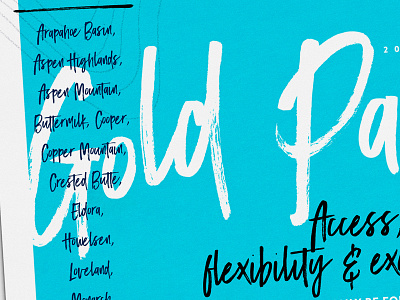 Arapahoe Basin,
Aspen Highlands,
Aspen Mountain,
Buttermilk, Cooper,
Copper Mountain,
Crested Butte,
Eldora,
Howelsen,
Loveland,
Monarch
20
Gold Pa
Access,
flexibility & ex